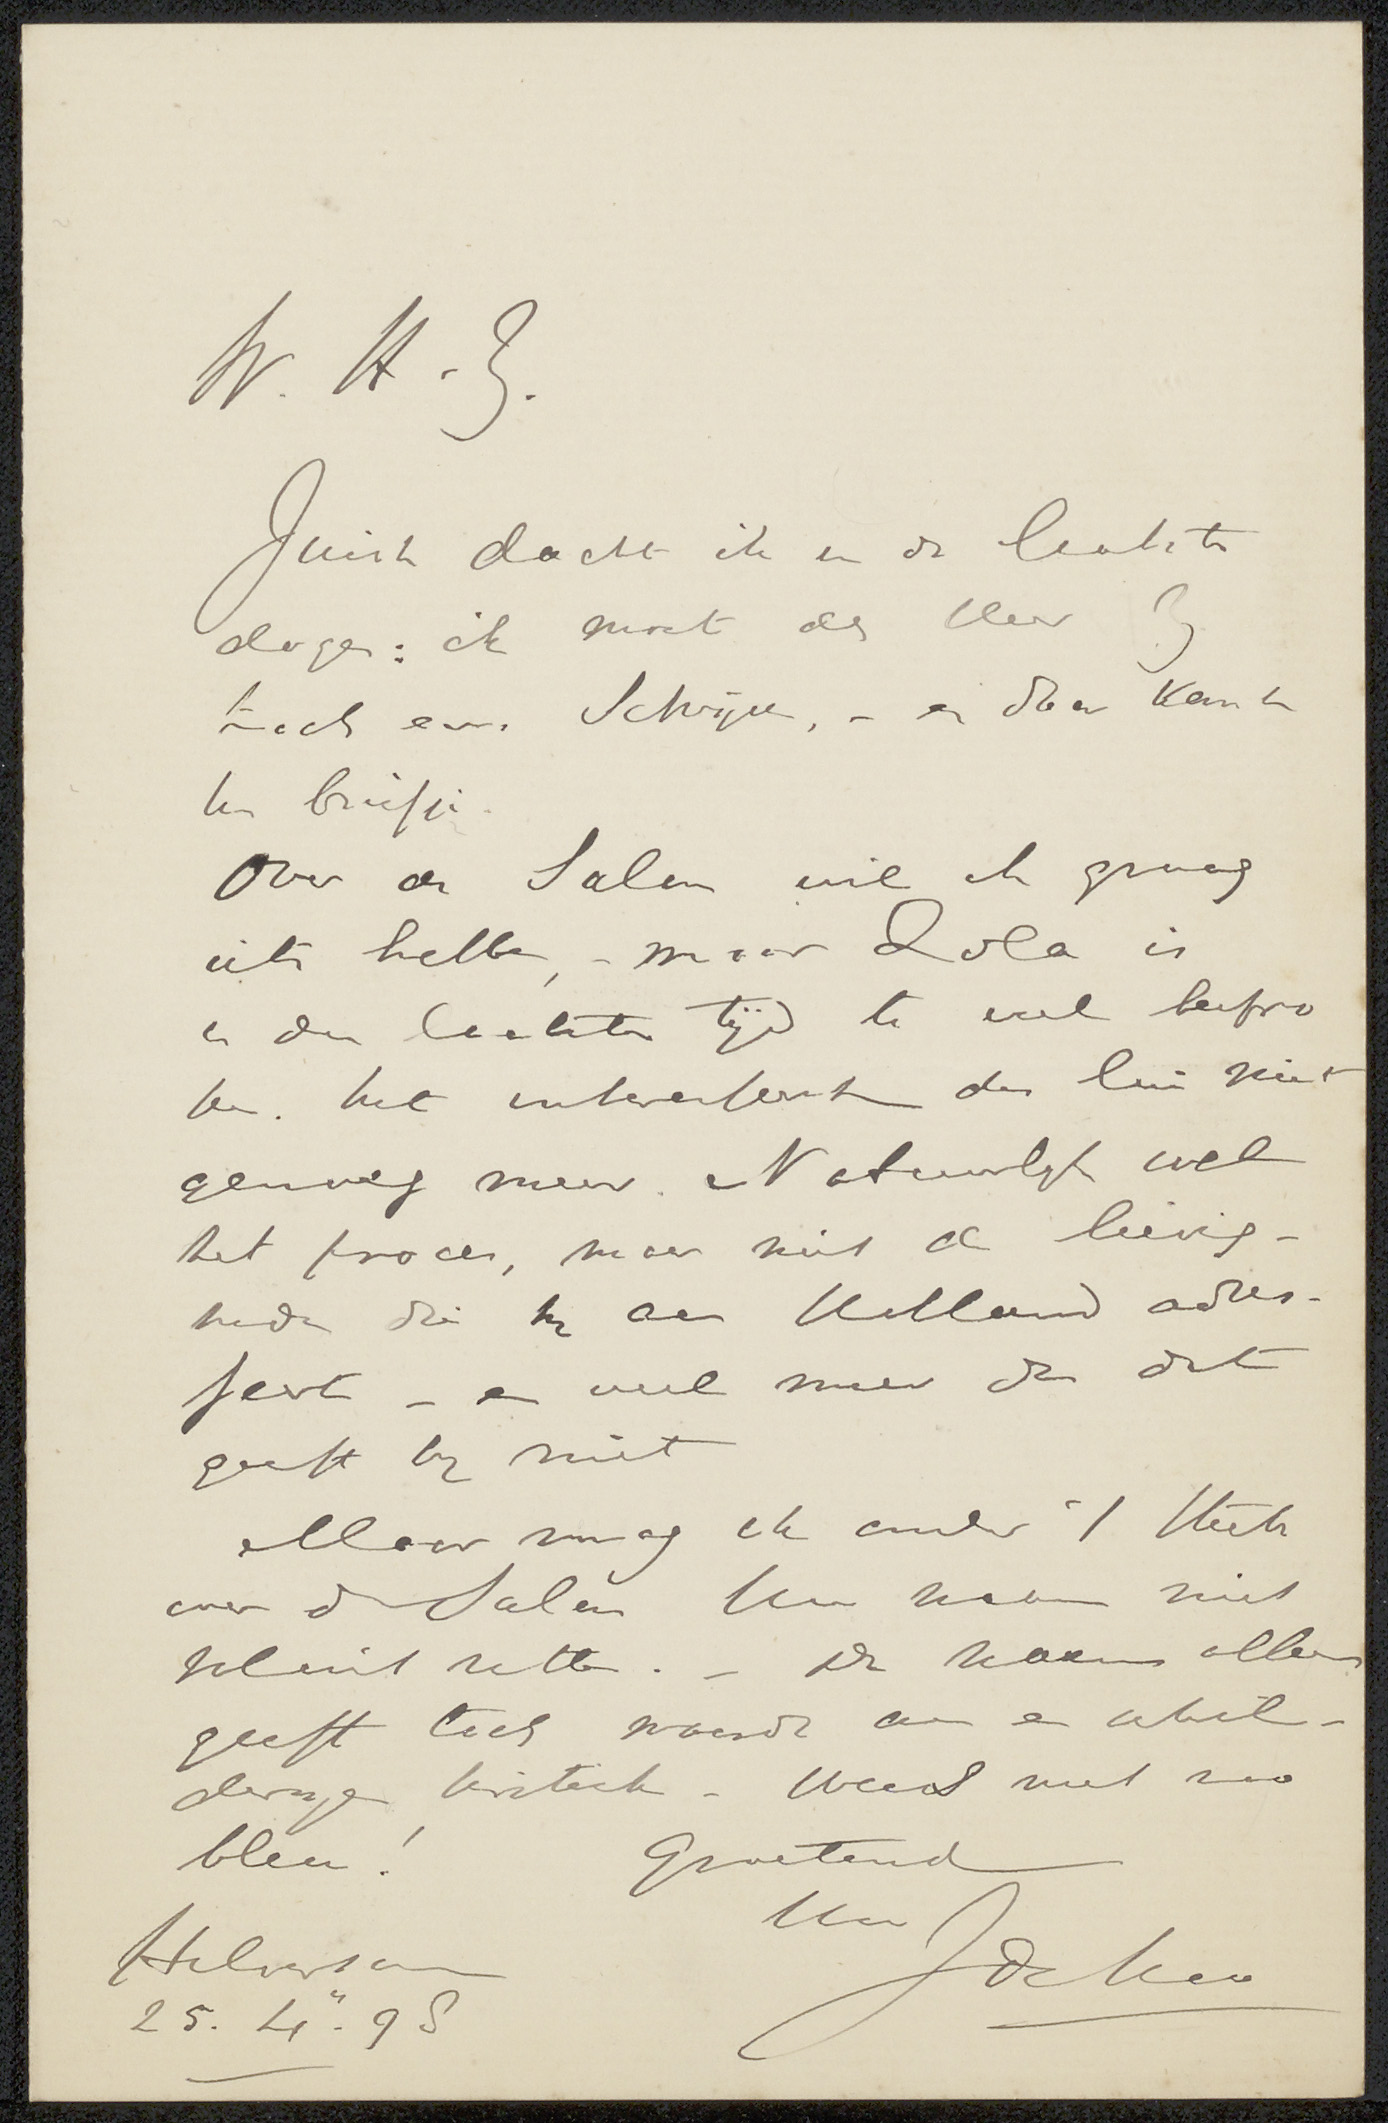 W. H. Z.
Juist dacht ik in de laatste
dagen: ik moet den Heer Z
toch eens schrijven, - en daar kwam
Uw briefje.
Over de Salon wil ik graag
iets hebben, - maar Zola is
in den laatsten tijd te veel bespro
ken. het interesseert den lui niet
genoeg meer. Natuurlijk wel
het proces, maar niet de
heden die hij aan Holland adres-
seert - en veel meer dan dat
geeft hij niet
Maar mag ik onder 't stuk
over de Salon Uw naam niet
voluit zetten. - De naam alleen
geeft toch waarde aan een schil-
derijen kritiek. - Wees niet zoo
bleu! Groetend
Uw
J de Koo
Hilversum
25. 4. 98